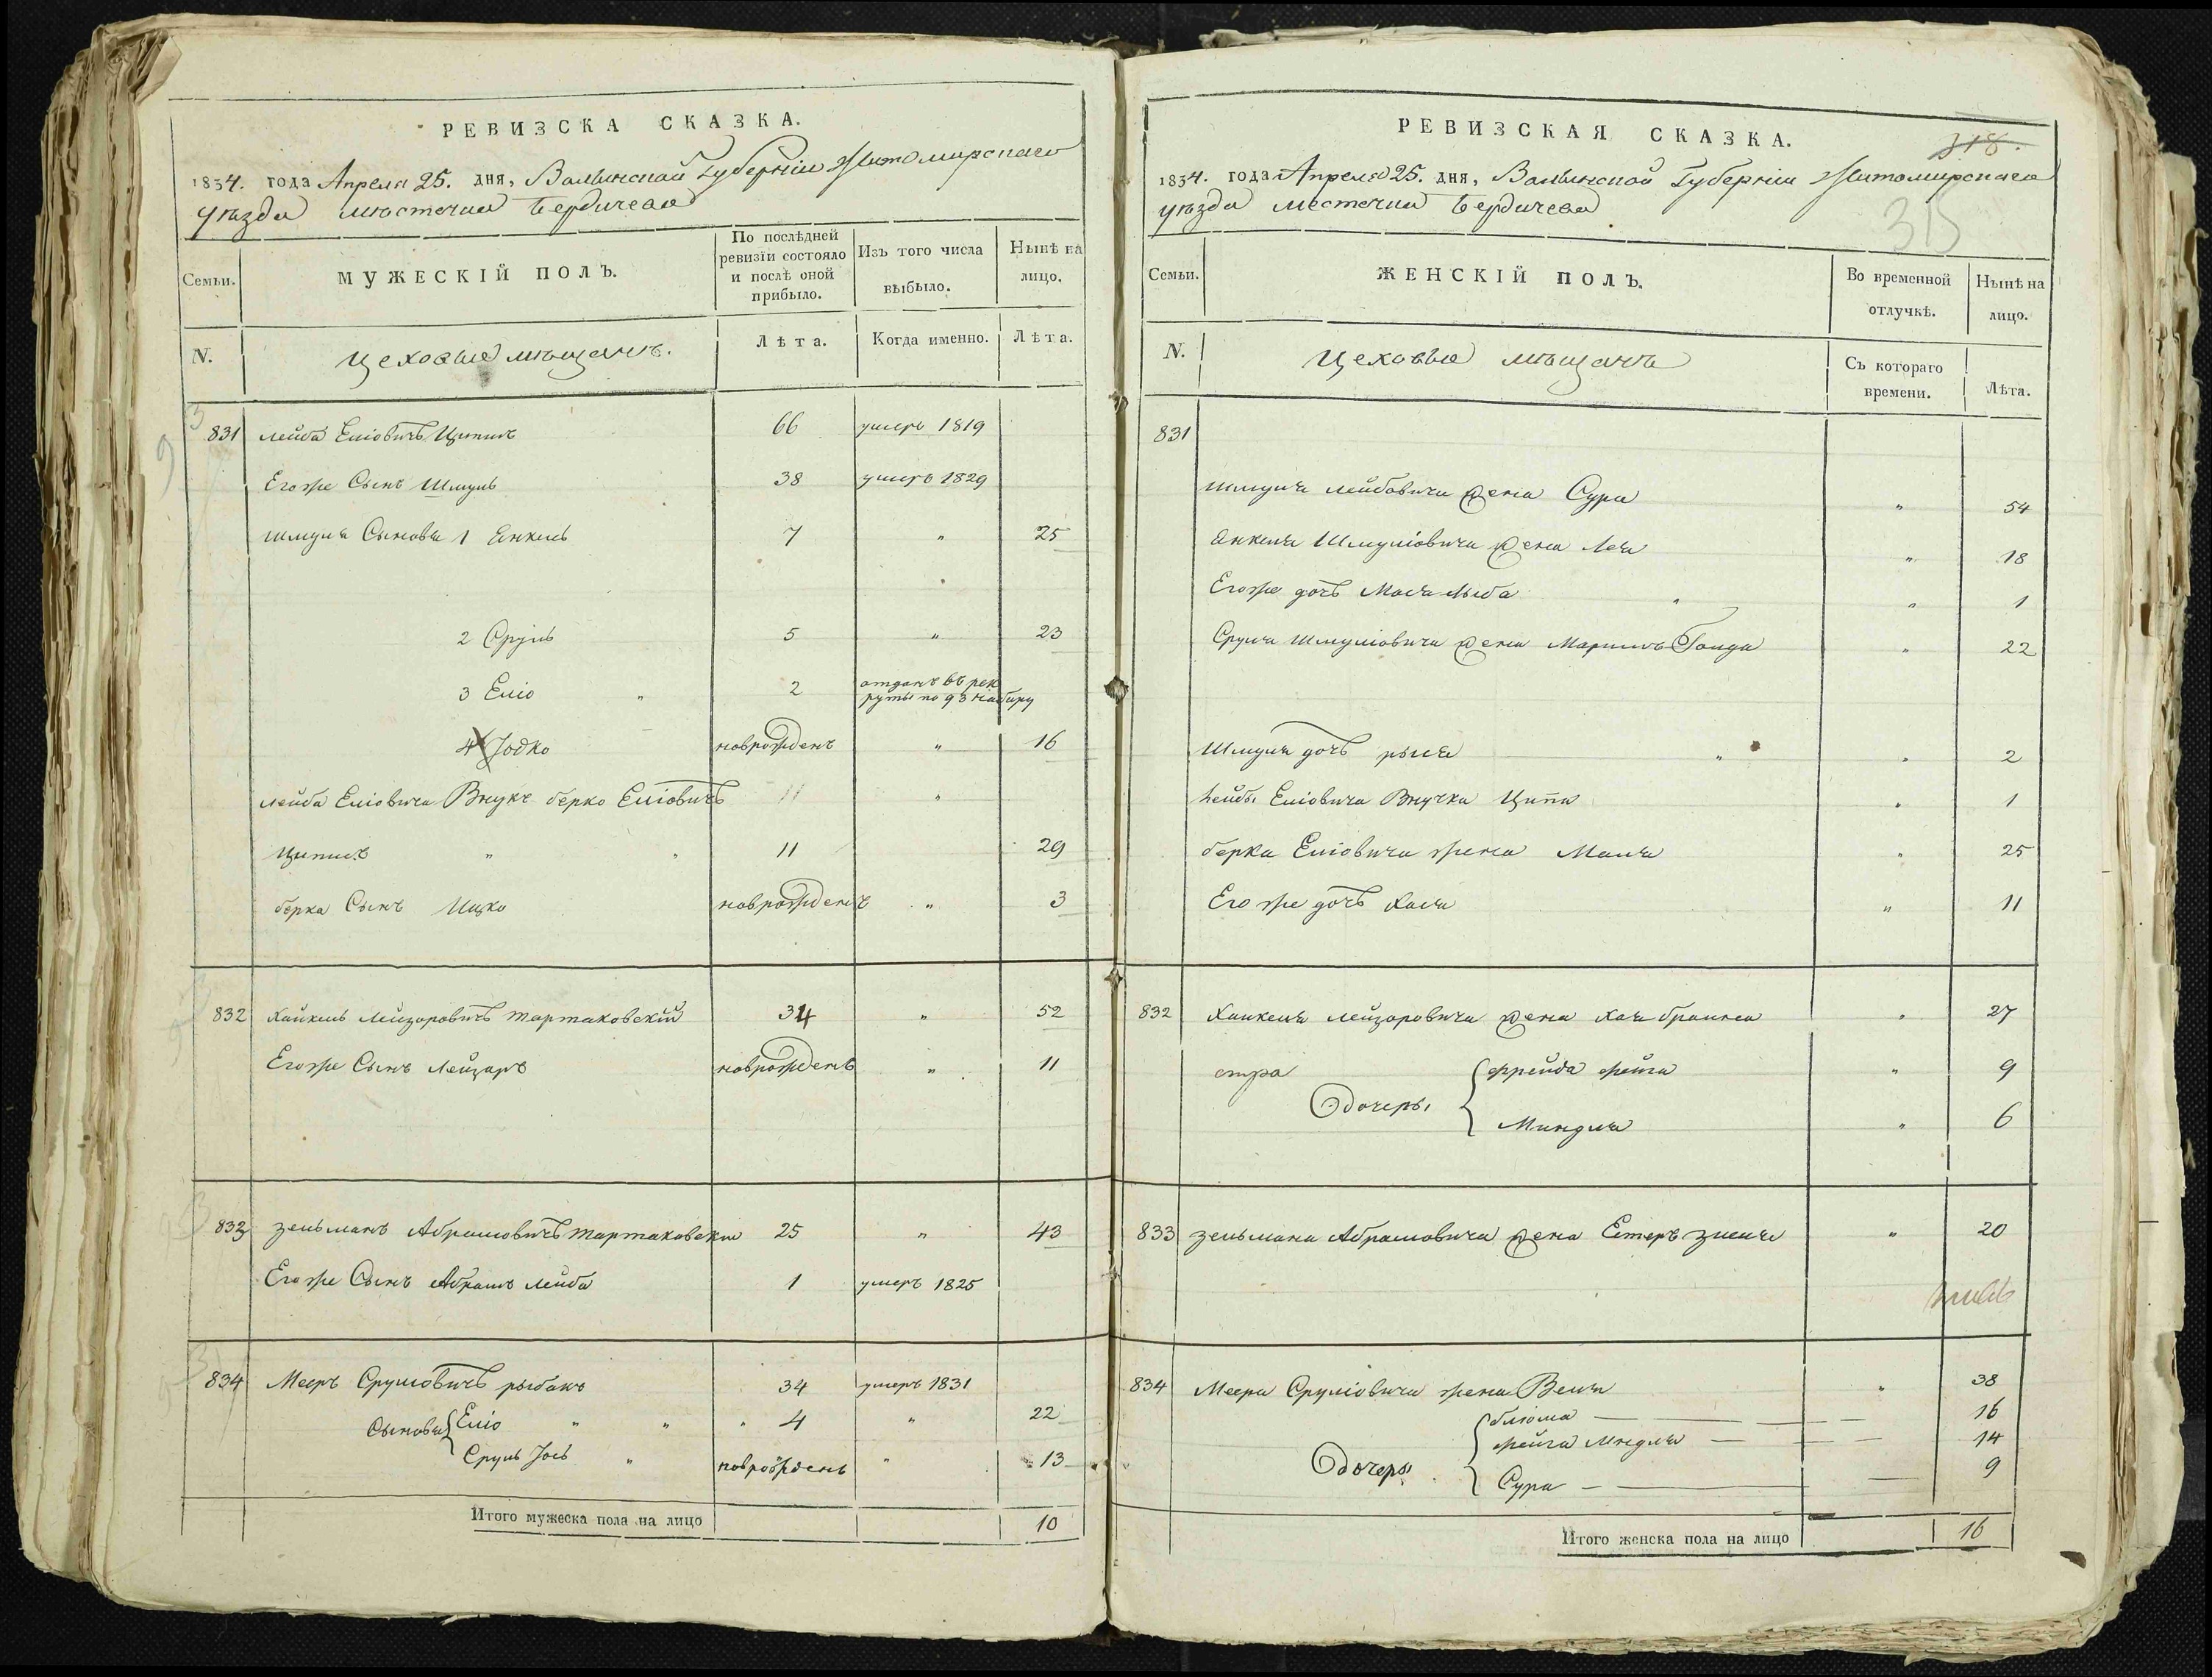 РЕВИЗСКА СКАЗКА.
1834. года Апреля 25. дня, Волынской Губерніи Житомирскаго
уѣзда мѣстечка Бердичева
Семьи.
МУЖЕСКІЙ ПОЛЪ.
По послѣдней
ревизіи состояло
и послѣ оной
прибыло.
Изъ того числа
выбыло.
Нынѣ на
лицо.
N.
Цеховые мѣщане.
Лѣта.
Когда именно.
Лѣта.
831 лейба Еліовичъ Ципинъ 66 умеръ 1819
Егоже Сынъ Шмуль 38 умеръ 1829
Шмуля Сыновья 1 Янкель 7 " 25
2 Сруль 5 " 23
3 Еліо " 2 отданъ въ рек
руты по 93 набору
4 Іодко новрожденъ " 16
лейба Еліовича Внукъ берко Еліовичъ 11 "
Ципинъ " " 11 29
берка Сынъ Ицко новрожденъ " 3
832 Хайкель лейзоровичъ тартаковскій 34 " 52
Егоже Сынъ лейзаръ новрожденъ " 11
833 зельманъ Абрамовичъ тартаковскій 25 " 43
Егоже Сынъ Абрамъ лейба 1 умеръ 1825
834 Мееръ Сруліовичъ рыбакъ 34 умеръ 1831
Сыновья Еліо " " " 4 " 22
Сруль Іось " новрожденъ " 13
Итого мужеска пола на лицо 10
РЕВИЗСКАЯ СКАЗКА.
318.
1834. года Апреля 25. дня, Волынской Губерніи Житомирскаго
уѣзда местечка Бердичева
315
Семьи.
ЖЕНСКІЙ ПОЛЪ.
Во временной
отлучкѣ.
Нынѣ на
лицо.
N.
Цеховые мѣщане
Съ котораго
времени.
Лѣта.
831
Шмуля лейбовича жена Сура " 54
Янкеля Шмуліовича жена Лея " 18
Егоже дочъ Мося " 1
Сруля Шмуліовича жена " 22
Шмуля дочъ " " 2
Лейбы Еліовича Внучка Ципа " 1
берка Еліовича жена Маля " 25
Егоже дочъ Хася " 11
832 Хайкеля лейзоровича жена Хая браина " 27
дочеры фрейда фейга " 9
Миндля " 6
833 зельмана Абрамовича жена Естеръ зисля " 20
834 Меера Сруліовича жена Веля " 38
дочеры блюма 16
фейга Миндля 14
Сура 9
Итого женска пола на лицо 16